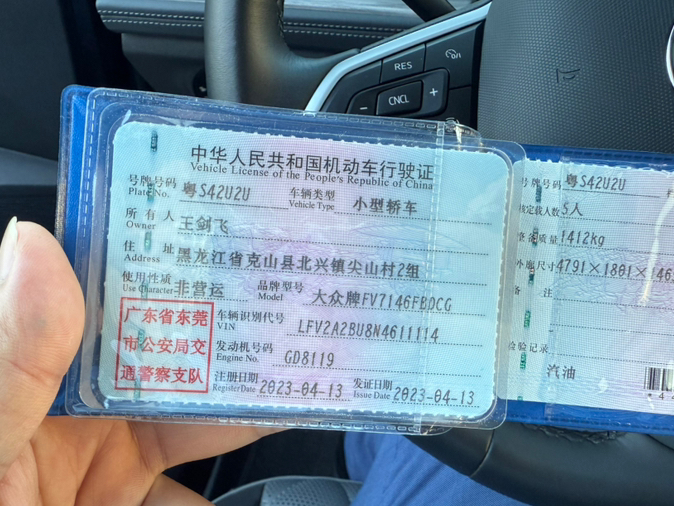 RES
CNCL
中华人民共和国机动车行驶证
Vehicle License of the People's Republic of China
号牌号码 粤S42U2U 车辆类型 小型轿车
Plate No. Vehicle Type
所有人 王剑飞
Owner
住址 黑龙江省克山县北兴镇尖山村2组
Address
使用性质 非营运 品牌型号 大众牌FV7146FBDCG
Use Character Model
广东省东莞
市公安局交
通警察支队
车辆识别代号 LFV2A2BU8N4611114
VIN
发动机号码 GD8119
Engine No.
注册日期 2023-04-13 发证日期 2023-04-13
Register Date Issue Date
号牌号码 粤S42U2U
核定载人数 5人
整备质量 1412kg
外廓尺寸 4791×1801×146
备注
检验记录
汽油